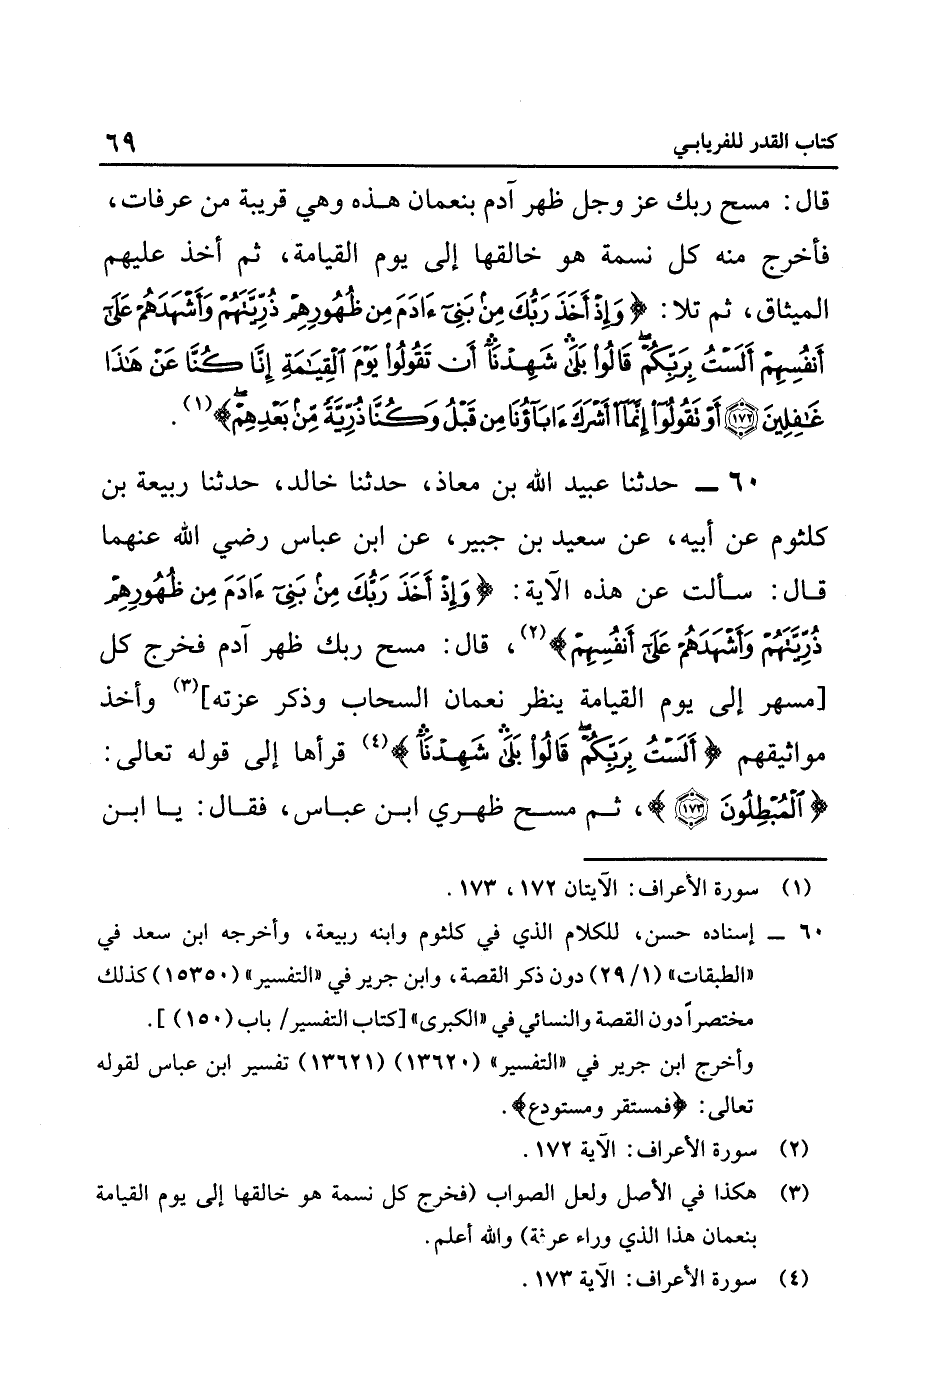 كتاب القدر للفريابي ٦٩
قال: مسح ربك عز وجل ظهر آدم بنعمان هذه وهي قريبة من عرفات،
فأخرج منه كل نسمة هو خالقها إلى يوم القيامة، ثم أخذ عليهم
الميثاق، ثم تلا: ﴿وَإِذْ أَخَذَ رَبُّكَ مِنۢ بَنِىٓ ءَادَمَ مِن ظُهُورِهِمْ ذُرِّيَّتَهُمْ وَأَشْهَدَهُمْ عَلَىٰٓ
أَنفُسِهِمْ أَلَسْتُ بِرَبِّكُمْ ۖ قَالُوا۟ بَلَىٰ ۛ شَهِدْنَآ ۛ أَن تَقُولُوا۟ يَوْمَ ٱلْقِيَٰمَةِ إِنَّا كُنَّا عَنْ هَٰذَا
غَٰفِلِينَ ١٧٢ أَوْ تَقُولُوٓا۟ إِنَّمَآ أَشْرَكَ ءَابَآؤُنَا مِن قَبْلُ وَكُنَّا ذُرِّيَّةً مِّنۢ بَعْدِهِمْ ۖ﴾(١).
٦٠ ــ حدثنا عبيد الله بن معاذ، حدثنا خالد، حدثنا ربيعة بن
كلثوم عن أبيه، عن سعيد بن جبير، عن ابن عباس رضي الله عنهما
قال: سألت عن هذه الآية: ﴿وَإِذْ أَخَذَ رَبُّكَ مِنۢ بَنِىٓ ءَادَمَ مِن ظُهُورِهِمْ
ذُرِّيَّتَهُمْ وَأَشْهَدَهُمْ عَلَىٰٓ أَنفُسِهِمْ﴾(٢)، قال: مسح ربك ظهر آدم فخرج كل
[مسهر إلى يوم القيامة ينظر نعمان السحاب وذكر عزته](٣) وأخذ
مواثيقهم ﴿أَلَسْتُ بِرَبِّكُمْ ۖ قَالُوا۟ بَلَىٰ ۛ شَهِدْنَآ ۛ﴾(٤) قرأها إلى قوله تعالى:
﴿ٱلْمُبْطِلُونَ ١٧٣﴾، ثم مسح ظهري ابن عباس، فقال: يا ابن
(١) سورة الأعراف: الآيتان ١٧٢، ١٧٣.
٦٠ ــ إسناده حسن، للكلام الذي في كلثوم وابنه ربيعة، وأخرجه ابن سعد في
«الطبقات» (٢٩/١) دون ذكر القصة، وابن جرير في «التفسير» (١٥٣٥٠) كذلك
مختصراً دون القصة والنسائي في «الكبرى» [كتاب التفسير/ باب (١٥٠)].
وأخرج ابن جرير في «التفسير» (١٣٦٢٠) (١٣٦٢١) تفسير ابن عباس لقوله
تعالى: ﴿فمستقر ومستودع﴾.
(٢) سورة الأعراف: الآية ١٧٢.
(٣) هكذا في الأصل ولعل الصواب (فخرج كل نسمة هو خالقها إلى يوم القيامة
بنعمان هذا الذي وراء عرفة) والله أعلم.
(٤) سورة الأعراف: الآية ١٧٣.